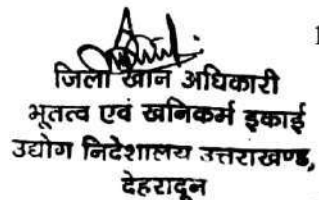 1
जिला खान अधिकारी
भूतत्व एवं खनिकर्म इकाई
उद्योग निदेशालय उत्तराखण्ड,
देहरादून